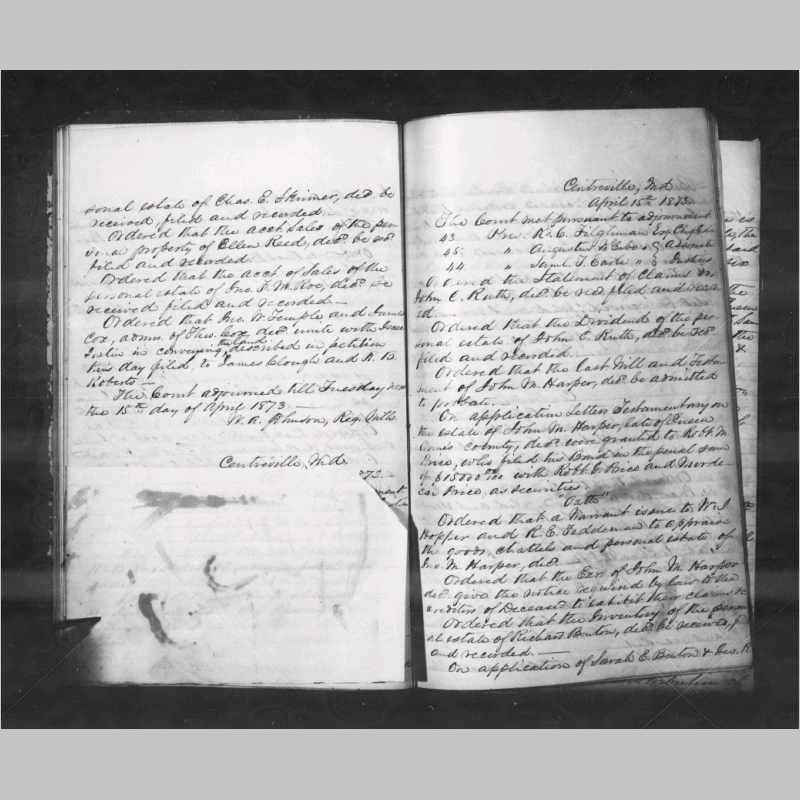 sonal estate of Chas. E. Skinner, decd. be
received, filed and recorded.
Ordered that the acct. Sales of the per
sonal property of Ellen Reed, decd. be recd
filed and recorded
Ordered that the acct of Sales of the
personal estate of Jno. T. M. Roe, decd. be
received filed and recorded —
Ordered that Jno. W. Temple and
Cox, admrs. of Thos. Cox, decd. unite with
in conveying the land described in petition
this day filed, to James Clough and R. B.
Roberts —
The Court adjourned till Tuesday
the 15th day of April 1873 —
W. A. Johnson, Reg. Wills
Centreville, Md
Centreville, Md
April 15th 1873.
The Court met pursuant to adjournment
43 Hon. R. C. Tilghman Esq Ch Jus
45 " Augustus
44 " Saml. T. Earle "
Ordered the Statement of Claims vs
John E. Ruth, decd. be recd filed and record
ed.
Ordered that the Dividend of the per
sonal estate of John E. Ruth, decd. be recd.
filed and recorded.
Ordered that the Last Will and Testa
ment of John M. Harper, decd. be admitted
to probate.
On application Letters Testamentary on
the estate of John M. Harper, late of Queen
Anne's County, decd. were granted to Robt. M.
Price, who filed his Bond in the penal sum
of $15000 with Robt. E. Price and
Price, as securities.
"Oath"
Ordered that a Warrant issue to W. J.
Hopper and R. E. Feddeman to appraise
the goods, chattels and personal estate of
Jno. M. Harper, decd —
Ordered that the Exr. of John M. Harper
decd. give the notice required by law to the
creditors of Deceased to exhibit their claims &c
Ordered that the Inventory of the person
al estate of Richard Benton, decd. be received, f
and recorded. —
On application of Sarah E. Benton &